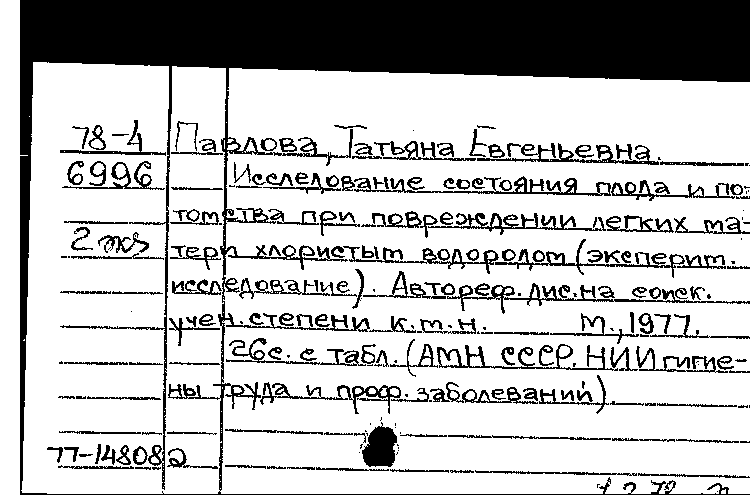 78-4 Павлова, Татьяна Евгеньевна.
6996 Исследование состояния плода и по-
томства при повреждении легких ма-
2 экз тери хлористым водородом (эксперим.
исследование). Автореф. дис. на соиск.
учен. степени к.м.н. М., 1977.
26с. с табл. (АМН СССР. НИИ гигие-
ны труда и проф. заболеваний).
77-14808а